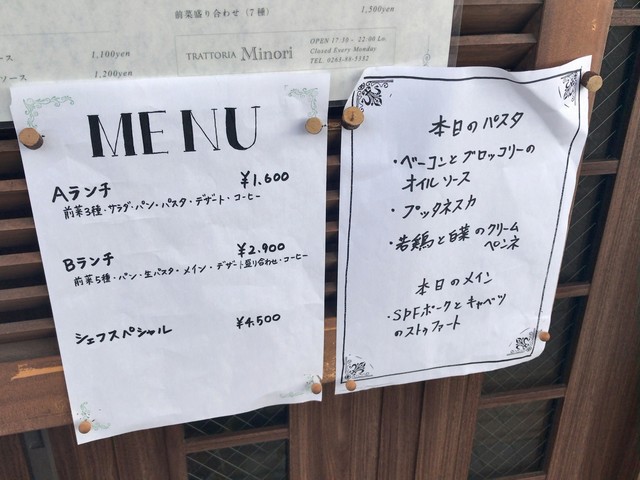 前菜盛り合わせ（7種） 1,500yen
ース 1,100yen
ソース 1,200yen
TRATTORIA Minori
OPEN 17:30 - 22:00 Lo.
Closed Every Monday
TEL 0263-88-5332
MENU
Aランチ ¥1.600
前菜3種・サラダ・パン・パスタ・デザート・コーヒー
Bランチ ¥2.900
前菜5種・パン・生パスタ・メイン・デザート盛り合わせ・コーヒー
シェフスペシャル ¥4.500
本日のパスタ
・ベーコンとブロッコリーの
オイルソース
・プッタネスカ
・若鶏と白菜のクリーム
ペンネ
本日のメイン
・SPFポークとキャベツ
のストゥファート